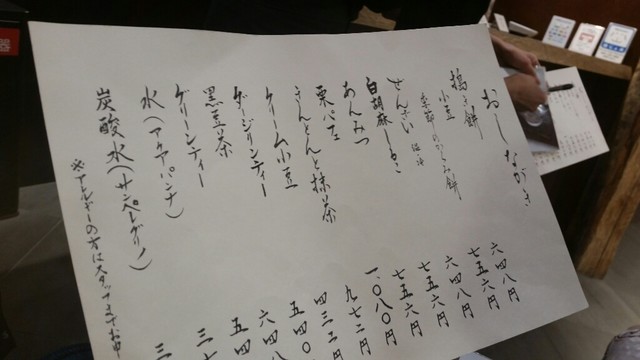 おしながき
搗き餅
小豆 六四八円
季節のおくみ餅 七五六円
ぜんざい 温・冷 六四八円
白胡麻しるこ 七五六円
あんみつ 七五六円
栗パフェ 一、〇八〇円
きんとんと抹茶 九七二円
クリーム小豆 四三二円
ダージリンティー 五四〇
黒豆茶 六四八
グリーンティー 五四
水（アクアパンナ）
炭酸水（サンペレグリノ）
※アレルギーの方はスタッフまでお申